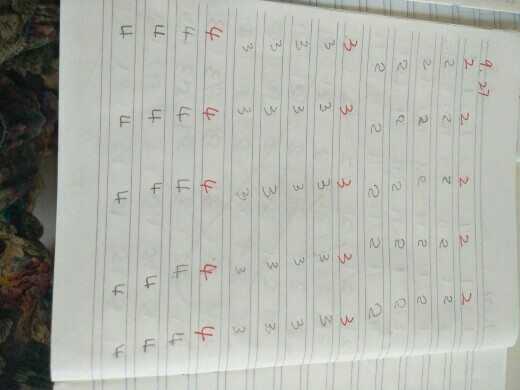 9.27
2 2 2 2 2
2 2 2 2 2
2 2 2 2 2
2 2 2 2 2
2 2 2 2 2
3 3 3 3 3
3 3 3 3 3
3 3 3 3 3
3 3 3 3 3
3 3 3 3 3
4 4 4 4 4
4 4 4 4 4
4 4 4 4 4
4 4 4 4 4